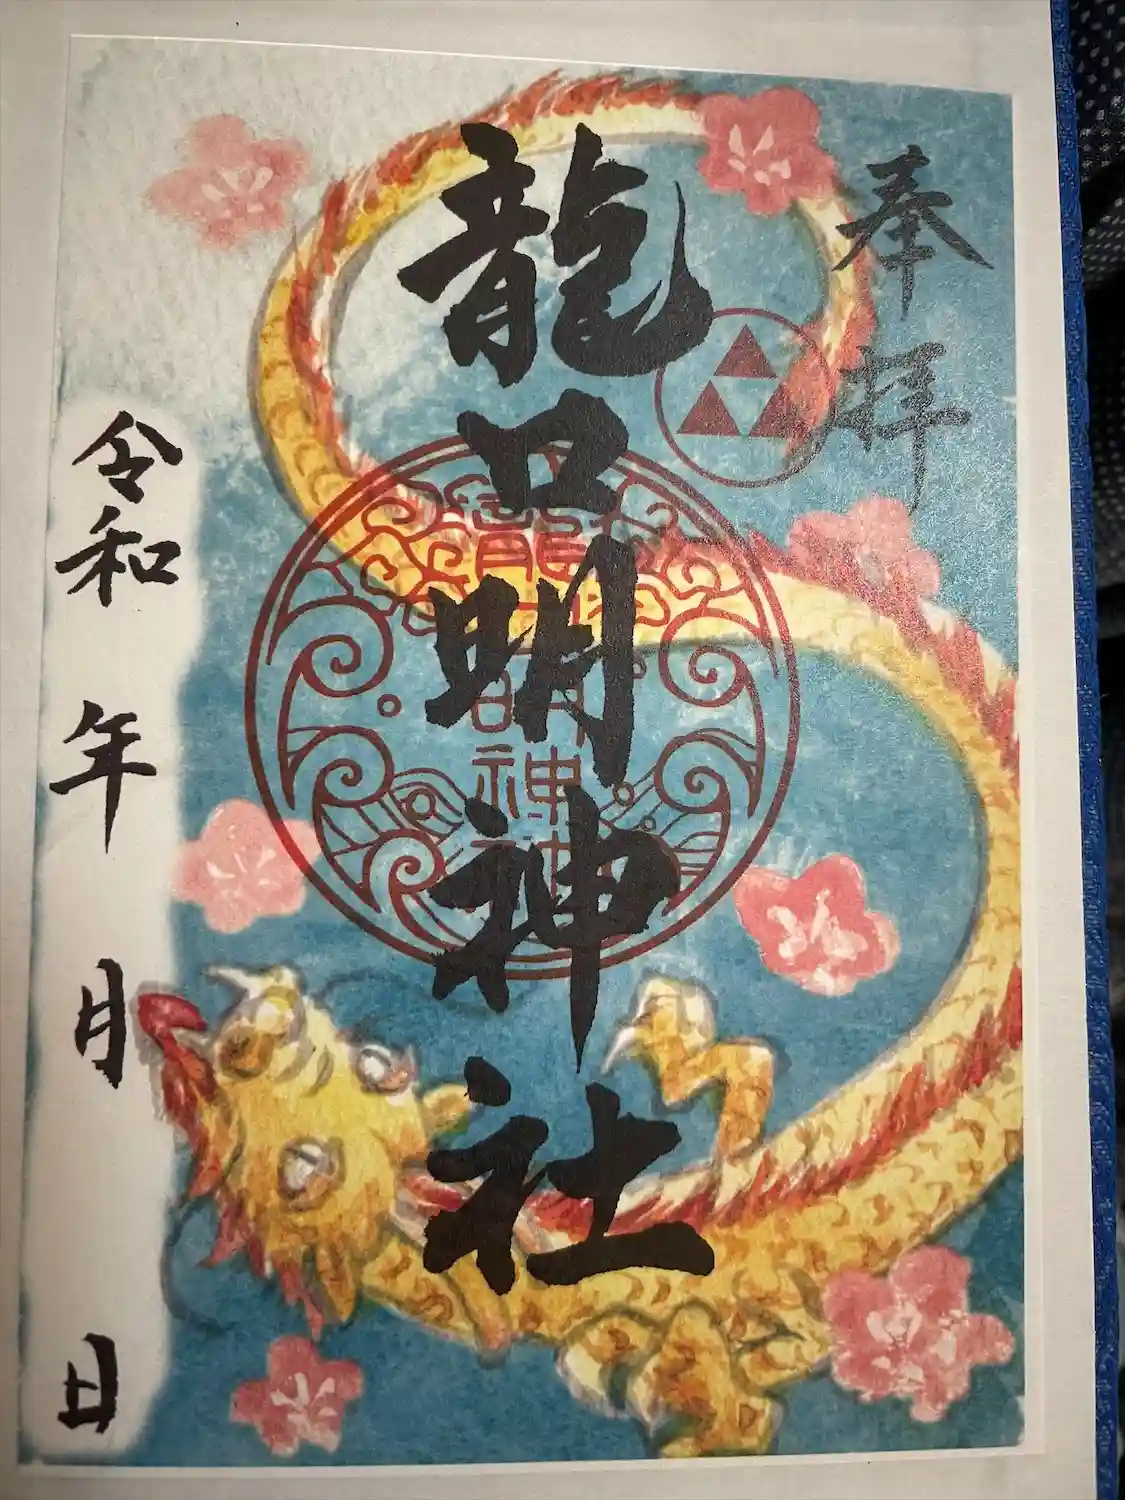 奉拝
龍口明神社
龍口明神社
令和 年 月 日